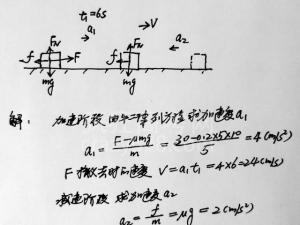 t₁=6s
a₁ →V a₂
F_N F_N
f F f
mg mg
解: 加速阶段 由牛二律列方程求加速度a₁
a₁ = \frac{F-μmg}{m} = \frac{30-0.2×5×10}{5} = 4(m/s²)
F撤去时的速度 V=a₁t₁=4×6=24(m/s)
减速阶段 求加速度a₂
a₂ = \frac{f}{m} = μg = 2(m/s²)